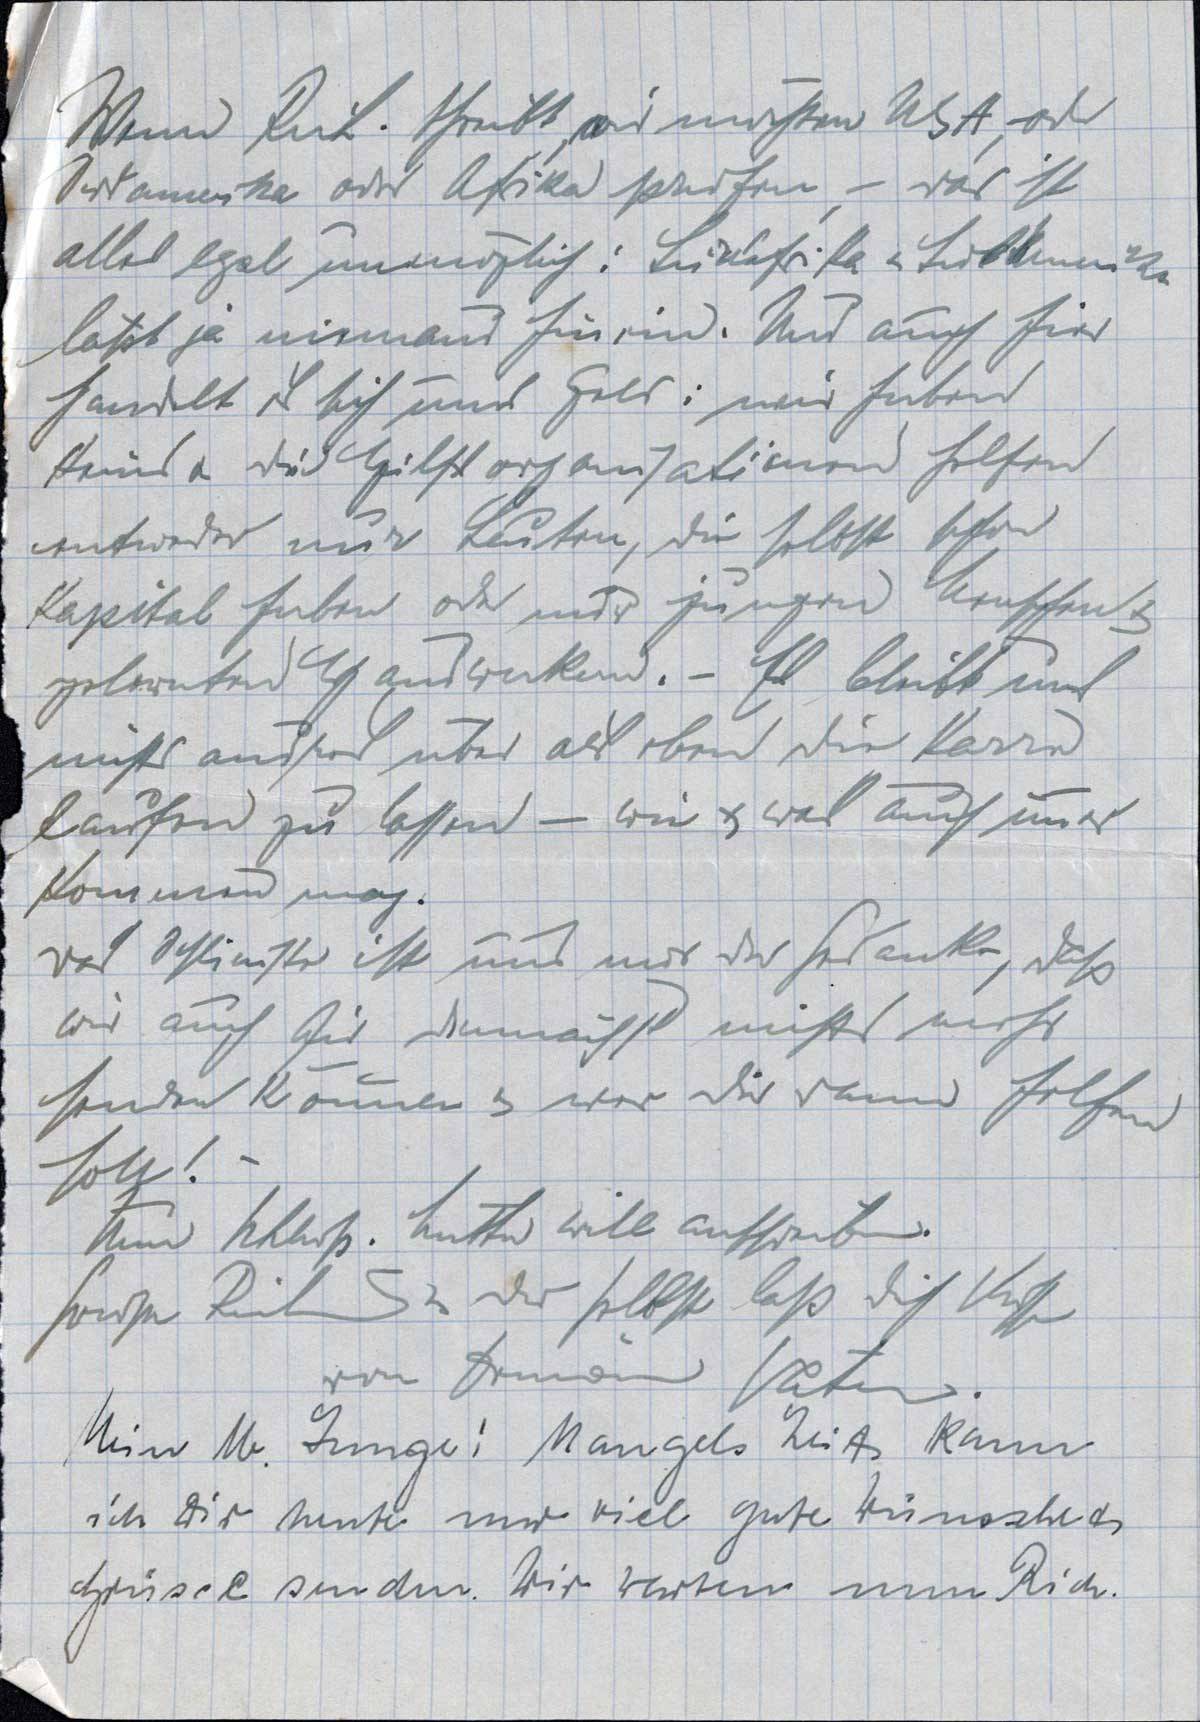 Wenn Rich. schreibt, wir möchten USA, oder
Südamerika oder Afrika prüfen, – das ist
alles egal unmöglich: Südafrika & Südamerika
läßt ja niemand hinein. Und auch hier
handelt es sich ums Geld: wir haben
keins & die Hilfsorganisationen helfen
entweder nur Leuten, die selbst schon
Kapital haben oder nur jungen &
gelernten Handwerkern. – Es bleibt uns
nichts andres über als eben die Karre
laufen zu lassen – wie & was auch immer
kommen mag.
Das Schlimmste ist uns nur der Gedanke, daß
wir auch Dir demnächst nichts mehr
senden können & wer Dir dann helfen
soll! –
Nun Schluß. Mutti will anschreiben.
Grüße Rich & Du selbst laß Dich küssen
von Deinem Vater.
Mein l. Junge! Mangels Zeit kann
ich Dir heute nur viel gute Wünsche &
Grüsse senden. Wir warten nun Rich.